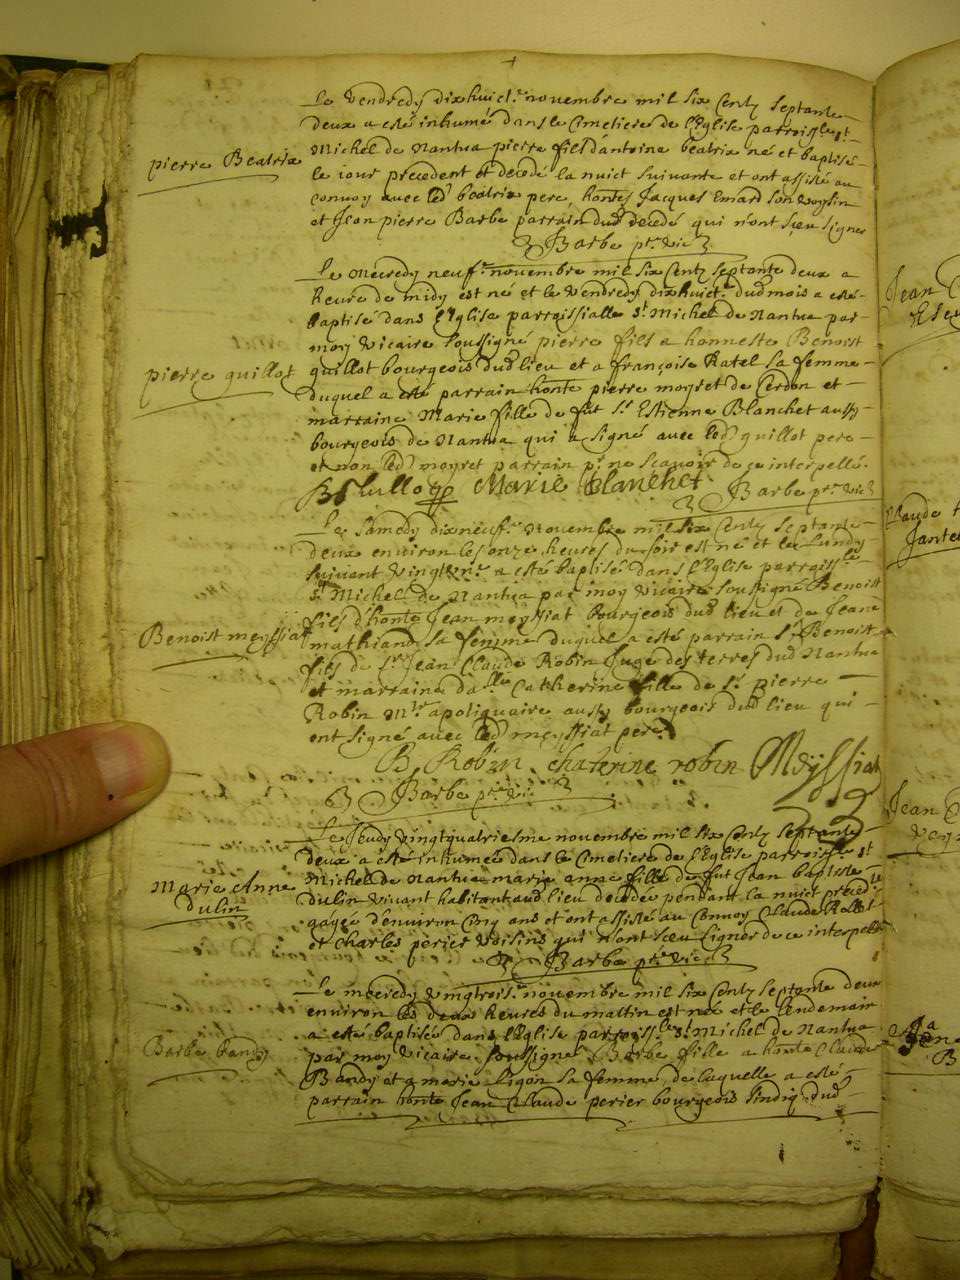 pierre Beatrix
Le vendredy dixhuict.e novembre mil six Centz septante
deux a esté inhumé dans le Cimetiere de l'Eglise parroissle st
Michel de Nantua pierre fils d'antoine beatrix né et baptisé
le iour precedent et decedé la nuict suivante et ont assisté au
convoy avec led beatrix pere, honte Jacques Emard son voysin
et Jean pierre Barbe parrain dud decedé qui n'ont sçeu signer
Barbe ptre vicre
pierre quillot
Le Mecredy neuf.e novembre mil six Centz septante deux a
heure de midy est né et le vendredy dixhuict.e dud mois a esté
baptisé dans l'Eglise parroissialle st Michel de Nantua par
moy vicaire soussigné pierre fils a honneste Benoist
quillot bourgeois dud lieu et a françoise Ratel sa femme
duquel a esté parrain honte pierre moyret de Cerdon et
marraine Marie fille de fut sr Estienne Blanchet aussy
bourgeois de Nantua qui a signé avec led quillot pere
et non led moyret parrain pr ne scavoir de ce interpellé.
B Guillot Marie blanchet Barbe ptre vicre
Benoist meyssiat
Le Samedy dixneuf.e Novembre mil six Centz septante
deux environ les onze heures du soir est né et le Lundy
suivant vingtun.e a esté baptisé dans l'Eglise parroissle
st Michel de Nantua par moy vicaire soussigné Benoist
fils d'honte Jean meyssiat bourgeois dud lieu et de Jeane
mathiand sa femme duquel a esté parrain sr Benoist
fils de sr Jean Claude Robin Juge des terres dud Nantua
et marraine dalle Catherine fille de sr pierre
Robin Mtre apotiquaire aussy bourgeois dud lieu qui
ont signé avec led meyssiat pere
B. Robin chaterine robin Meyssiat
Barbe ptre vicre
Marie Anne
Dulin
Le Jeudy vingtquatriesme novembre mil six Centz septante
deux a esté inhumée dans le Cimetiere de l'Eglise parroissle st
Michel de Nantua marie anne fille de fut Jean baptiste
dulin vivant habitant aud lieu decedée pendant la nuict precedte
agée d'environ Cinq ans et ont assisté au Convoy Claude Rollet
et Charles perier voisins qui n'ont sceu signer de ce interpellés
Barbe ptre vicre
Barbe bandy
Le mecredy vingtrois.e novembre mil six Centz septante deux
environ les deux heures du mattin est née et le lendemain
a esté baptisée dans l'Eglise parroissle st Michel de Nantua
par moy vicaire soussigné Barbe fille a honte Claude
Bandy et a marie Ligon sa femme de laquelle a esté
parrain honte Jean Claude perier bourgeois sindiq dud